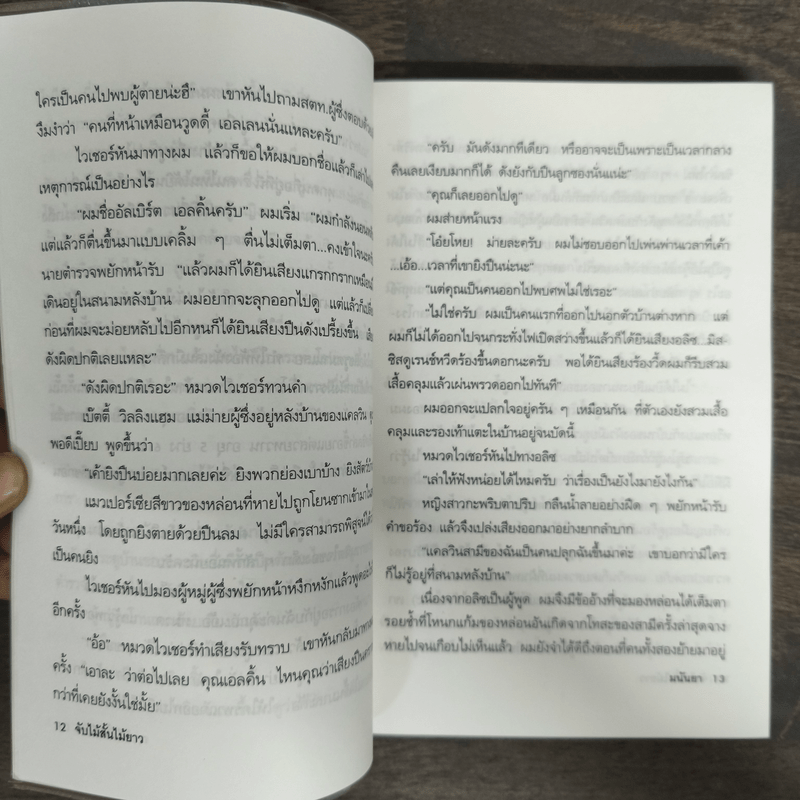 ใครเป็นคนไปพบผู้ตายน่ะฮึ" เขาหันไปถามสตท.ผู้ซึ่งตอบด้วย
งึมงำว่า "คนที่หน้าเหมือนวูดดี้ เอลเลนนั่นแหละครับ"
ไวเชอร์หันมาทางผม แล้วก็ขอให้ผมบอกชื่อแล้วก็เล่า
เหตุการณ์เป็นอย่างไร
"ผมชื่ออัลเบิร์ต เอลคิ้นครับ" ผมเริ่ม "ผมกำลังนอน
แต่แล้วก็ตื่นขึ้นมาแบบเคลิ้ม ๆ ตื่นไม่เต็มตา...คงเข้าใจนะ
นายตำรวจพยักหน้ารับ "แล้วผมก็ได้ยินเสียงแกรกกรากเหมือน
เดินอยู่ในสนามหลังบ้าน ผมอยากจะลุกออกไปดู แต่แล้วก็
ก่อนที่ผมจะม่อยหลับไปอีกหนก็ได้ยินเสียงปืนดังเปรี้ยงขึ้น
ดังผิดปกติเลยแหละ"
"ดังผิดปกติเรอะ" หมวดไวเชอร์ทวนคำ
เบ๊ตตี้ วิลลิงแฮม แม่ม่ายผู้ซึ่งอยู่หลังบ้านของแคลวิน
พอดีเปี๊ยบ พูดขึ้นว่า
"เค้ายิงปืนบ่อยมากเลยค่ะ ยิงพวกย่องเบาบ้าง ยิงสัตว์
แมวเปอร์เซียสีขาวของหล่อนที่หายไปถูกโยนซากเข้ามาใน
วันหนึ่ง โดยถูกยิงตายด้วยปืนลม ไม่มีใครสามารถพิสูจน์ได้
เป็นคนยิง
ไวเชอร์หันไปมองผู้หมู่ผู้ซึ่งพยักหน้าหงึกหงักแล้วพูด
อีกครั้ง
"อ้อ" หมวดไวเชอร์ทำเสียงรับทราบ เขาหันกลับมาทาง
ครั้ง "เอาละ ว่าต่อไปเลย คุณเอลคิ้น ไหนคุณว่าเสียงปืน
กว่าที่เคยยังงั้นใช่มั้ย"
12 จับไม้สั้นไม้ยาว
"ครับ มันดังมากทีเดียว หรืออาจจะเป็นเพราะเป็นเวลากลาง
คืนเลยเงียบมากก็ได้ ดังยังกับปืนลูกซองนั่นแน่ะ"
"คุณก็เลยออกไปดู"
ผมส่ายหน้าแรง
"โอ๋ยโหย! ม่ายละครับ ผมไม่ชอบออกไปเพ่นพ่านเวลาที่เค้า
...เอ้อ...เวลาที่เขายิงปืนน่ะนะ"
"แต่คุณเป็นคนออกไปพบศพไม่ใช่เรอะ"
"ไม่ใช่ครับ ผมเป็นคนแรกที่ออกไปนอกตัวบ้านต่างหาก แต่
ผมก็ไม่ได้ออกไปจนกระทั่งไฟเปิดสว่างขึ้นแล้วก็ได้ยินเสียงอลิซ มิส-
ซิสดูเรนช์หวีดร้องขึ้นดอกนะครับ พอได้ยินเสียงร้องวี้ดผมก็รีบสวม
เสื้อคลุมแล้วเผ่นพรวดออกไปทันที"
ผมออกจะแปลกใจอยู่ครัน ๆ เหมือนกัน ที่ตัวเองยังสวมเสื้อ
คลุมและรองเท้าแตะในบ้านอยู่จนบัดนี้
หมวดไวเชอร์หันไปทางอลิซ
"เล่าให้ฟังหน่อยได้ไหมครับ ว่าเรื่องเป็นยังไงมายังไงกัน"
หญิงสาวกะพริบตาปริบ กลืนน้ำลายอย่างฝืด ๆ พยักหน้ารับ
คำขอร้อง แล้วจึงเปล่งเสียงออกมาอย่างยากลำบาก
"แคลวินสามีของฉันเป็นคนปลุกฉันขึ้นมาค่ะ เขาบอกว่ามีใคร
ก็ไม่รู้อยู่ที่สนามหลังบ้าน"
เนื่องจากอลิซเป็นผู้พูด ผมจึงมีข้ออ้างที่จะมองหล่อนได้เต็มตา
รอยช้ำที่โหนกแก้มของหล่อนอันเกิดจากโทสะของสามีครั้งล่าสุดจาง
หายไปจนเกือบไม่เห็นแล้ว ผมยังจำได้ดีถึงตอนที่คนทั้งสองย้ายมาอยู่
มนันยา 13